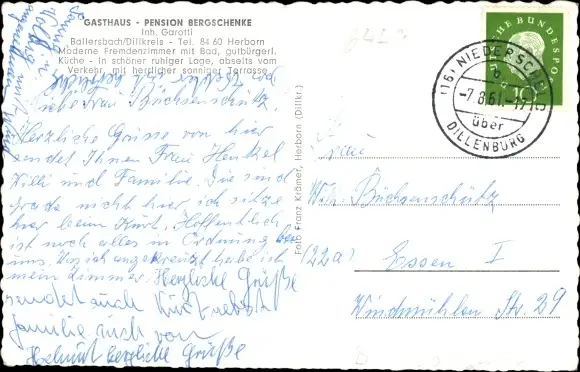 GASTHAUS - PENSION BERGSCHENKE
Inh. Garotti
Ballersbach/Dillkreis - Tel. 84 60 Herborn
Moderne Fremdenzimmer mit Bad, gutbürgerl.
Küche - In schöner ruhiger Lage, abseits vom
Verkehr mit herrlicher sonniger Terrasse
Liebe Frau Büchsenschütz,
Herzliche Grüsse von hier
sendet Ihnen Frau Henkel
Willi und Familie. Die sind
grade nicht hier ich sitze
hier beim Kurt. Hoffentlich
ist noch alles in Ordnung bei
uns. Wo ich angekreuzt habe ist
mein Zimmer. Herzliche Grüße
sendet auch Kurt nebst
Familie auch von
Helmut herzliche Grüße
Foto Franz Krämer, Herborn (Dillkr.)
DEUTSCHE BUNDESPOST
10
(16) NIEDERSCHELD
-7.8.61.-17
über
DILLENBURG
Frau
Wtw. Büchsenschütz
(22a) Essen I
Windmühlen Str. 29